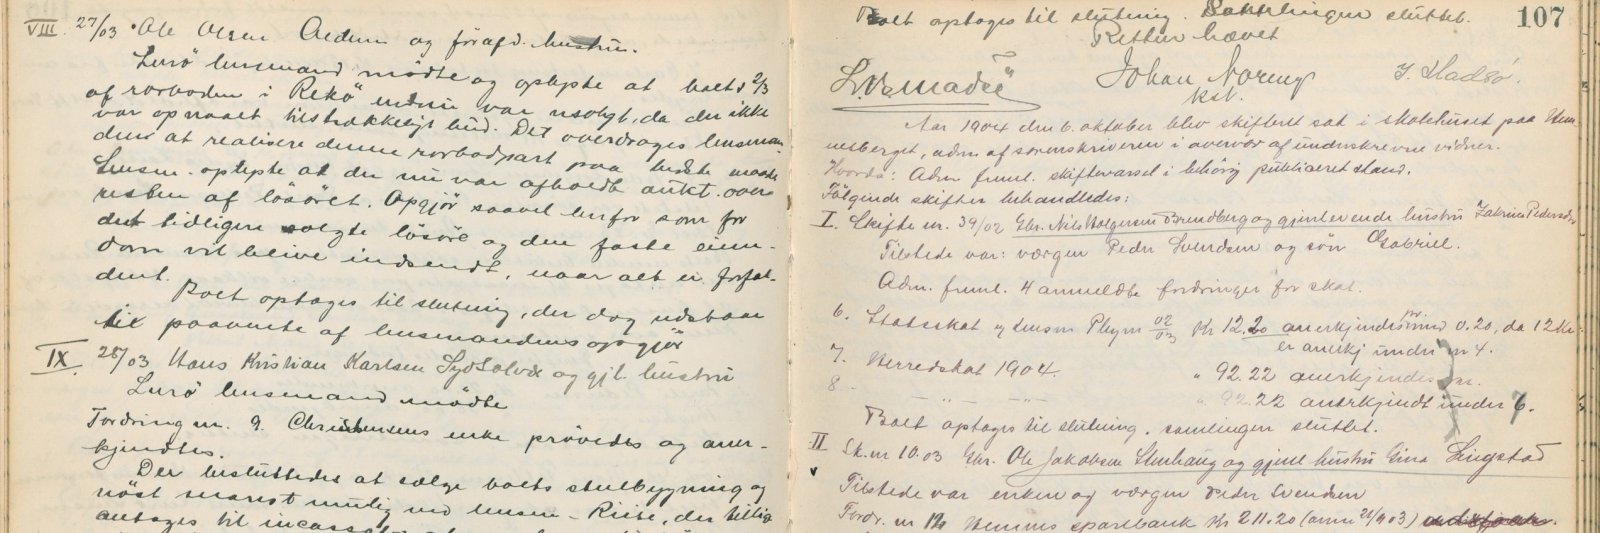 VIII. 27/03 Ole Olsen Aldern og förafd. hustru.
Lurö lensmand mødte og oplyste at boets 2/3
af rorboden i Rekö endnu var usolgt, da der ikke
var opnaaet tilstrækkeligt bud. Det overdrages lensman-
den at realisere denne rorbodpart paa bedste maade
Lensm. oplyste at der nu var afholdt aukt. over
resten af lösöret. Opgjör saavel herfor som for
det tidligere solgte lösöre og den faste eien-
dom vil blive indsendt, naar alt er forfal-
dent.
Boet optages til slutning, der dog udstaar
til paavente af lensmandens opgjör
IX. 28/03 Hans Kristian Karlsen Sydsolvær og gjl. hustru
Lurö lensmand mødte
Fordring nr. 9. Christensens enke prövedes og aner-
kjendtes.
Der besluttedes at sælge boets stuebygning og
nöst snarest mulig ved lensm. Riise, der tillige
antages til incasso
107
Boet optages til slutning. Samlingen sluttet.
Retten hævet
Johan Noreng
kst.
Aar 1904 den 6. oktober blev skifteret sat i skolehuset paa Hem-
nesberget, adm. af sorenskriveren i overvær af underskrevne vidner.
Hvorda: Adm freml. skiftevarsel i behörig publiceret stand.
Fölgende skifter behandledes:
I. Skifte nr. 39/02 Gbr. Nils Holgersen Brendberg og gjenlevende hustru Zakrine Pedersdtr
Tilstede var: værgen Peder Svendsen og sön Gabriel.
Adm. freml. 4 anmeldte fordringer for skat.
6. Statsskat og lensm Pleym 02/03 Kr 12.20 anerkjendes pr. med 0.20, da 12 Kr.
er anerkj under nr 4.
7. Herredskat 1904. " 92.22 anerkjendes
8. - " - " - " 92.22 anerkjendt under 6.
Boet optages til slutning. samlingen sluttet.
II Sk. nr 10.03 Gbr. Ole Jakobsen Stenhaug og gjenl hustru Gina Lingstad
Tilstede var enken og værgen Peder Svendsen
Fordr. nr 12 Hemnes sparebank Kr 211.20